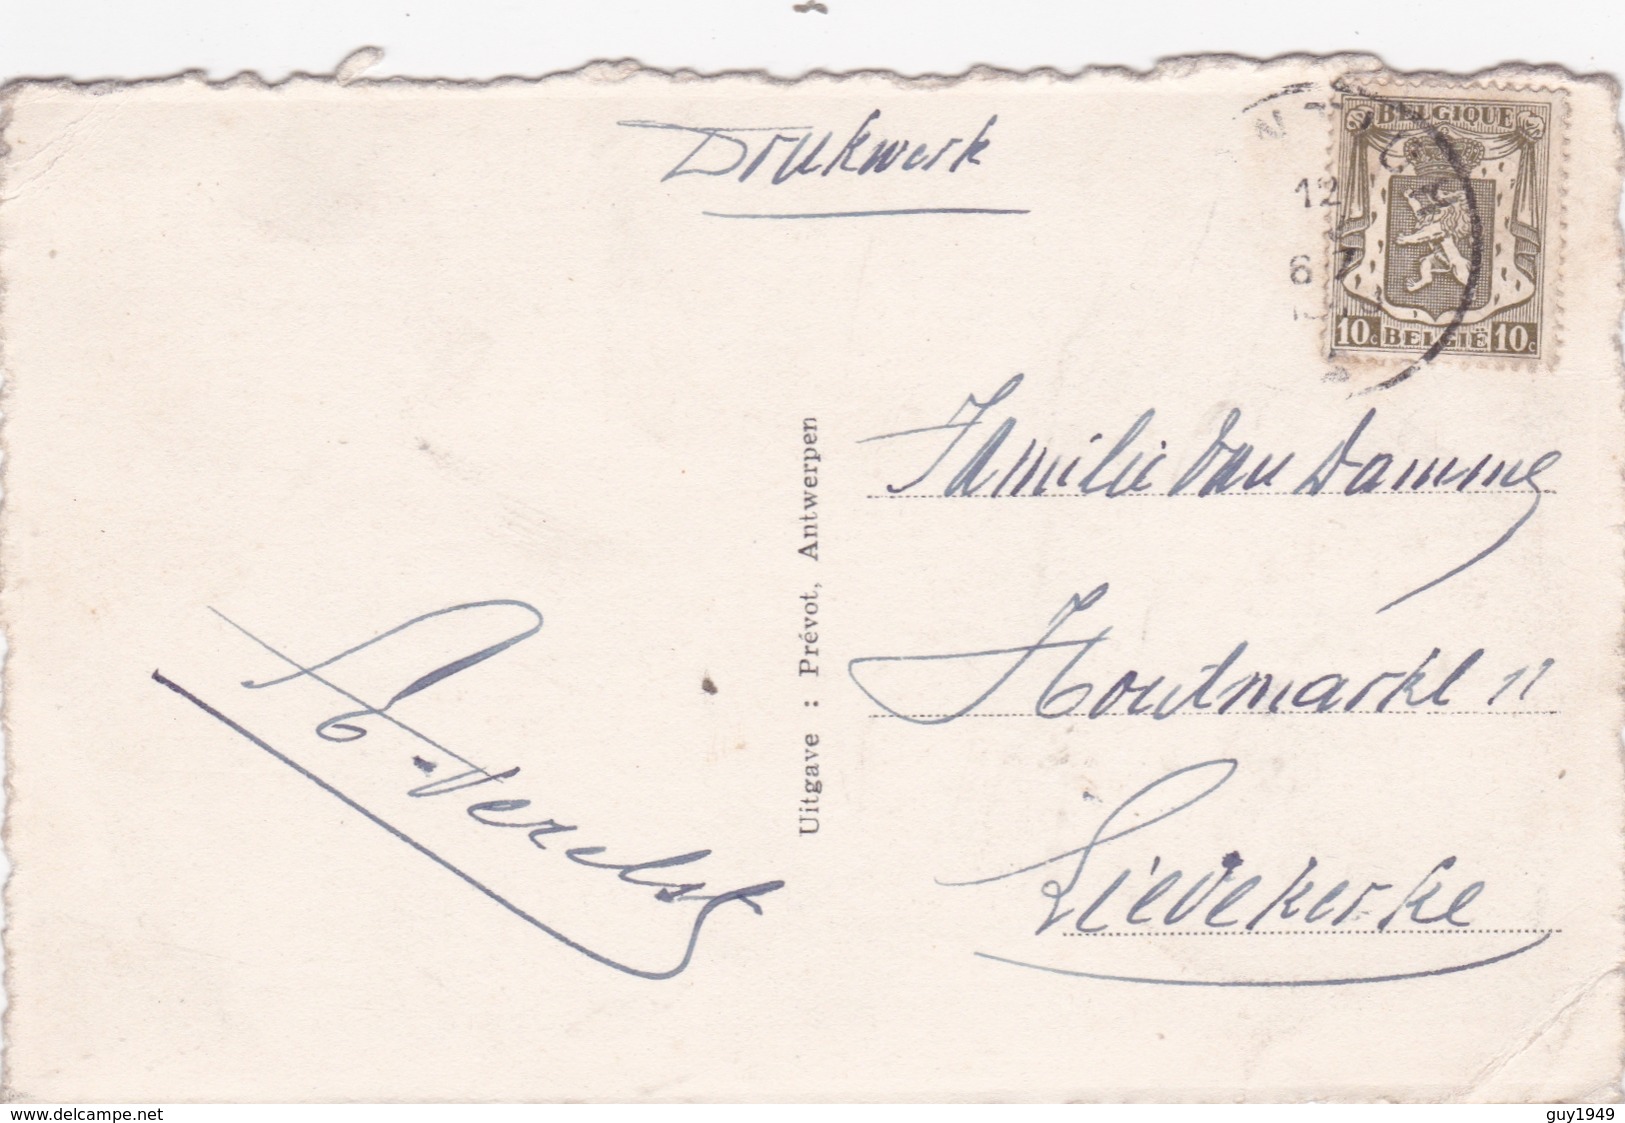 Drukwerk
BELGIQUE
10c BELGIË 10c
12
6
Familie Van Damme
Houtmarkt 11
Lievekerke
Uitgave : Prévot, Antwerpen
www.delcampe.net
guy1949